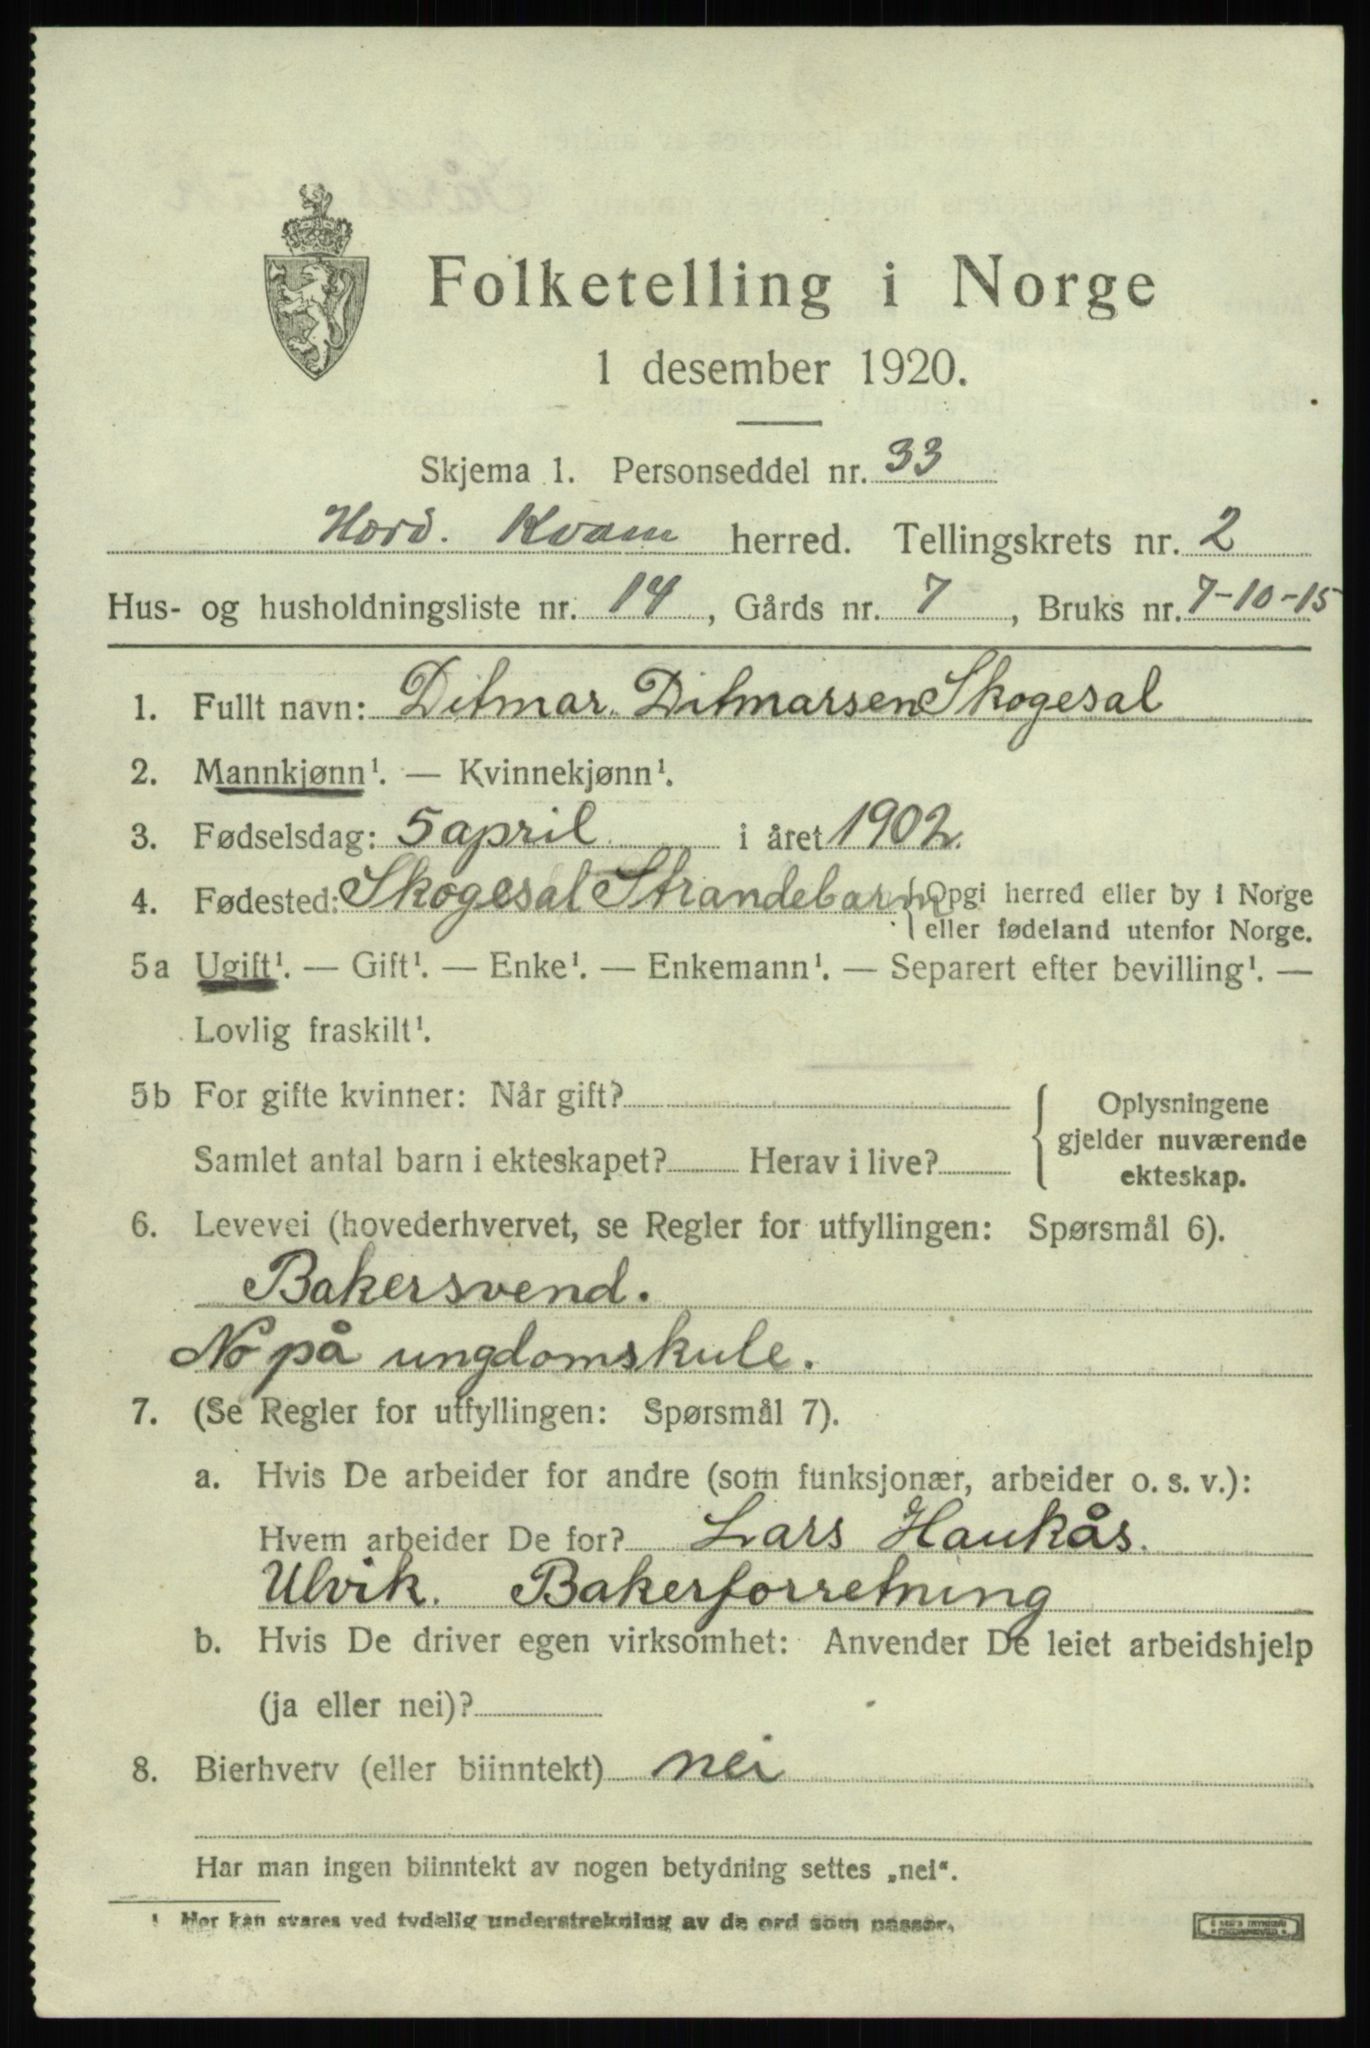 Folketelling i Norge
1 desember 1920.
Skjema 1. Personseddel nr. 33
Hord. Kvam herred. Tellingskrets nr. 2
Hus- og husholdningsliste nr. 14, Gårds nr. 7, Bruks nr. 7-10-15
1. Fullt navn: Ditmar Ditmarsen Skogesal
2. Mannkjønn¹. — Kvinnekjønn¹.
3. Fødselsdag: 5 april i året 1902.
4. Fødested: Skogesal Strandebarm { Opgi herred eller by i Norge
eller fødeland utenfor Norge.
5a Ugift¹. — Gift¹. — Enke¹. — Enkemann¹. — Separert efter bevilling¹. —
Lovlig fraskilt¹.
5b For gifte kvinner: Når gift?
Samlet antal barn i ekteskapet? Herav i live?
Oplysningene
gjelder nuværende
ekteskap.
6. Levevei (hovederhvervet, se Regler for utfyllingen: Spørsmål 6).
Bakersvend.
No på ungdomskule.
7. (Se Regler for utfyllingen: Spørsmål 7).
a. Hvis De arbeider for andre (som funksjonær, arbeider o. s. v.):
Hvem arbeider De for? Lars Haukås.
Ulvik. Bakerforretning
b. Hvis De driver egen virksomhet: Anvender De leiet arbeidshjelp
(ja eller nei)?
8. Bierhverv (eller biinntekt) nei
Har man ingen biinntekt av nogen betydning settes „nei“.
¹ Her kan svares ved tydelig understrekning av de ord som passer.